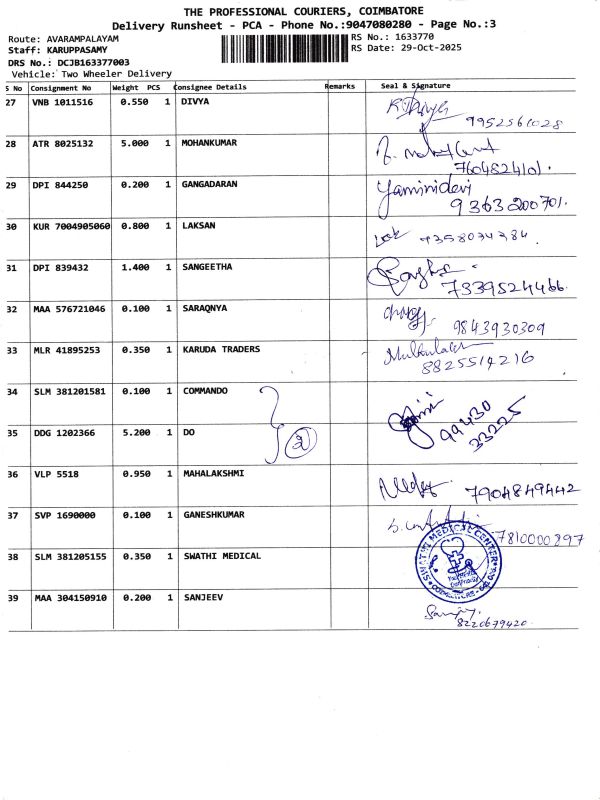 THE PROFESSIONAL COURIERS, COIMBATORE
Delivery Runsheet - PCA - Phone No.:9047080280 - Page No.:3
Route: AVARAMPALAYAM
RS No.: 1633770
Staff: KARUPPASAMY
RS Date: 29-Oct-2025
DRS No.: DCJB163377003
Vehicle: Two Wheeler Delivery
S No Consignment No Weight PCS Consignee Details Remarks Seal & Signature
27 VNB 1011516 0.550 1 DIVYA
9952561028
28 ATR 8025132 5.000 1 MOHANKUMAR
7604824101.
29 DPI 844250 0.200 1 GANGADARAN Yaminidevi
9363200701.
30 KUR 7004905060 0.800 1 LAKSAN
9358034384.
31 DPI 839432 1.400 1 SANGEETHA
7339524466.
32 MAA 576721046 0.100 1 SARAQNYA
9843930309
33 MLR 41895253 0.350 1 KARUDA TRADERS
8825514216
34 SLM 381201581 0.100 1 COMMANDO
99430
33225
35 DDG 1202366 5.200 1 DO 2
36 VLP 5518 0.950 1 MAHALAKSHMI
7904849442
37 SVP 1690000 0.100 1 GANESHKUMAR
7810000897
38 SLM 381205155 0.350 1 SWATHI MEDICAL
SWATHI MEDICAL CENTER
39 MAA 304150910 0.200 1 SANJEEV
8220679420.